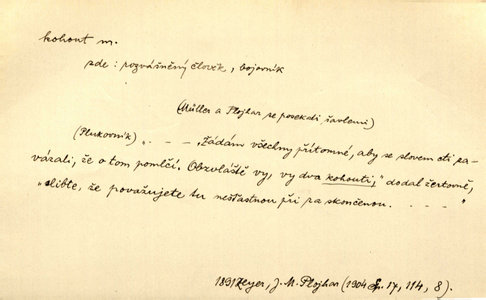 kohout m.
zde: rozvášněný člověk, bojovník
(Müller a Plojhar se posekali šavlemi)
(Plukovník) „. – – – „Žádám všechny přítomné, aby se slovem cti za-
vázali, že o tom pomlčí. Obzvláště vy, vy dva kohouti," dodal žertovně,
„slibte, že považujete tu nešťastnou při za skončenou. . – – – . "
1891 Zeyer, J. M. Plojhar (1904 17, 114, 8).